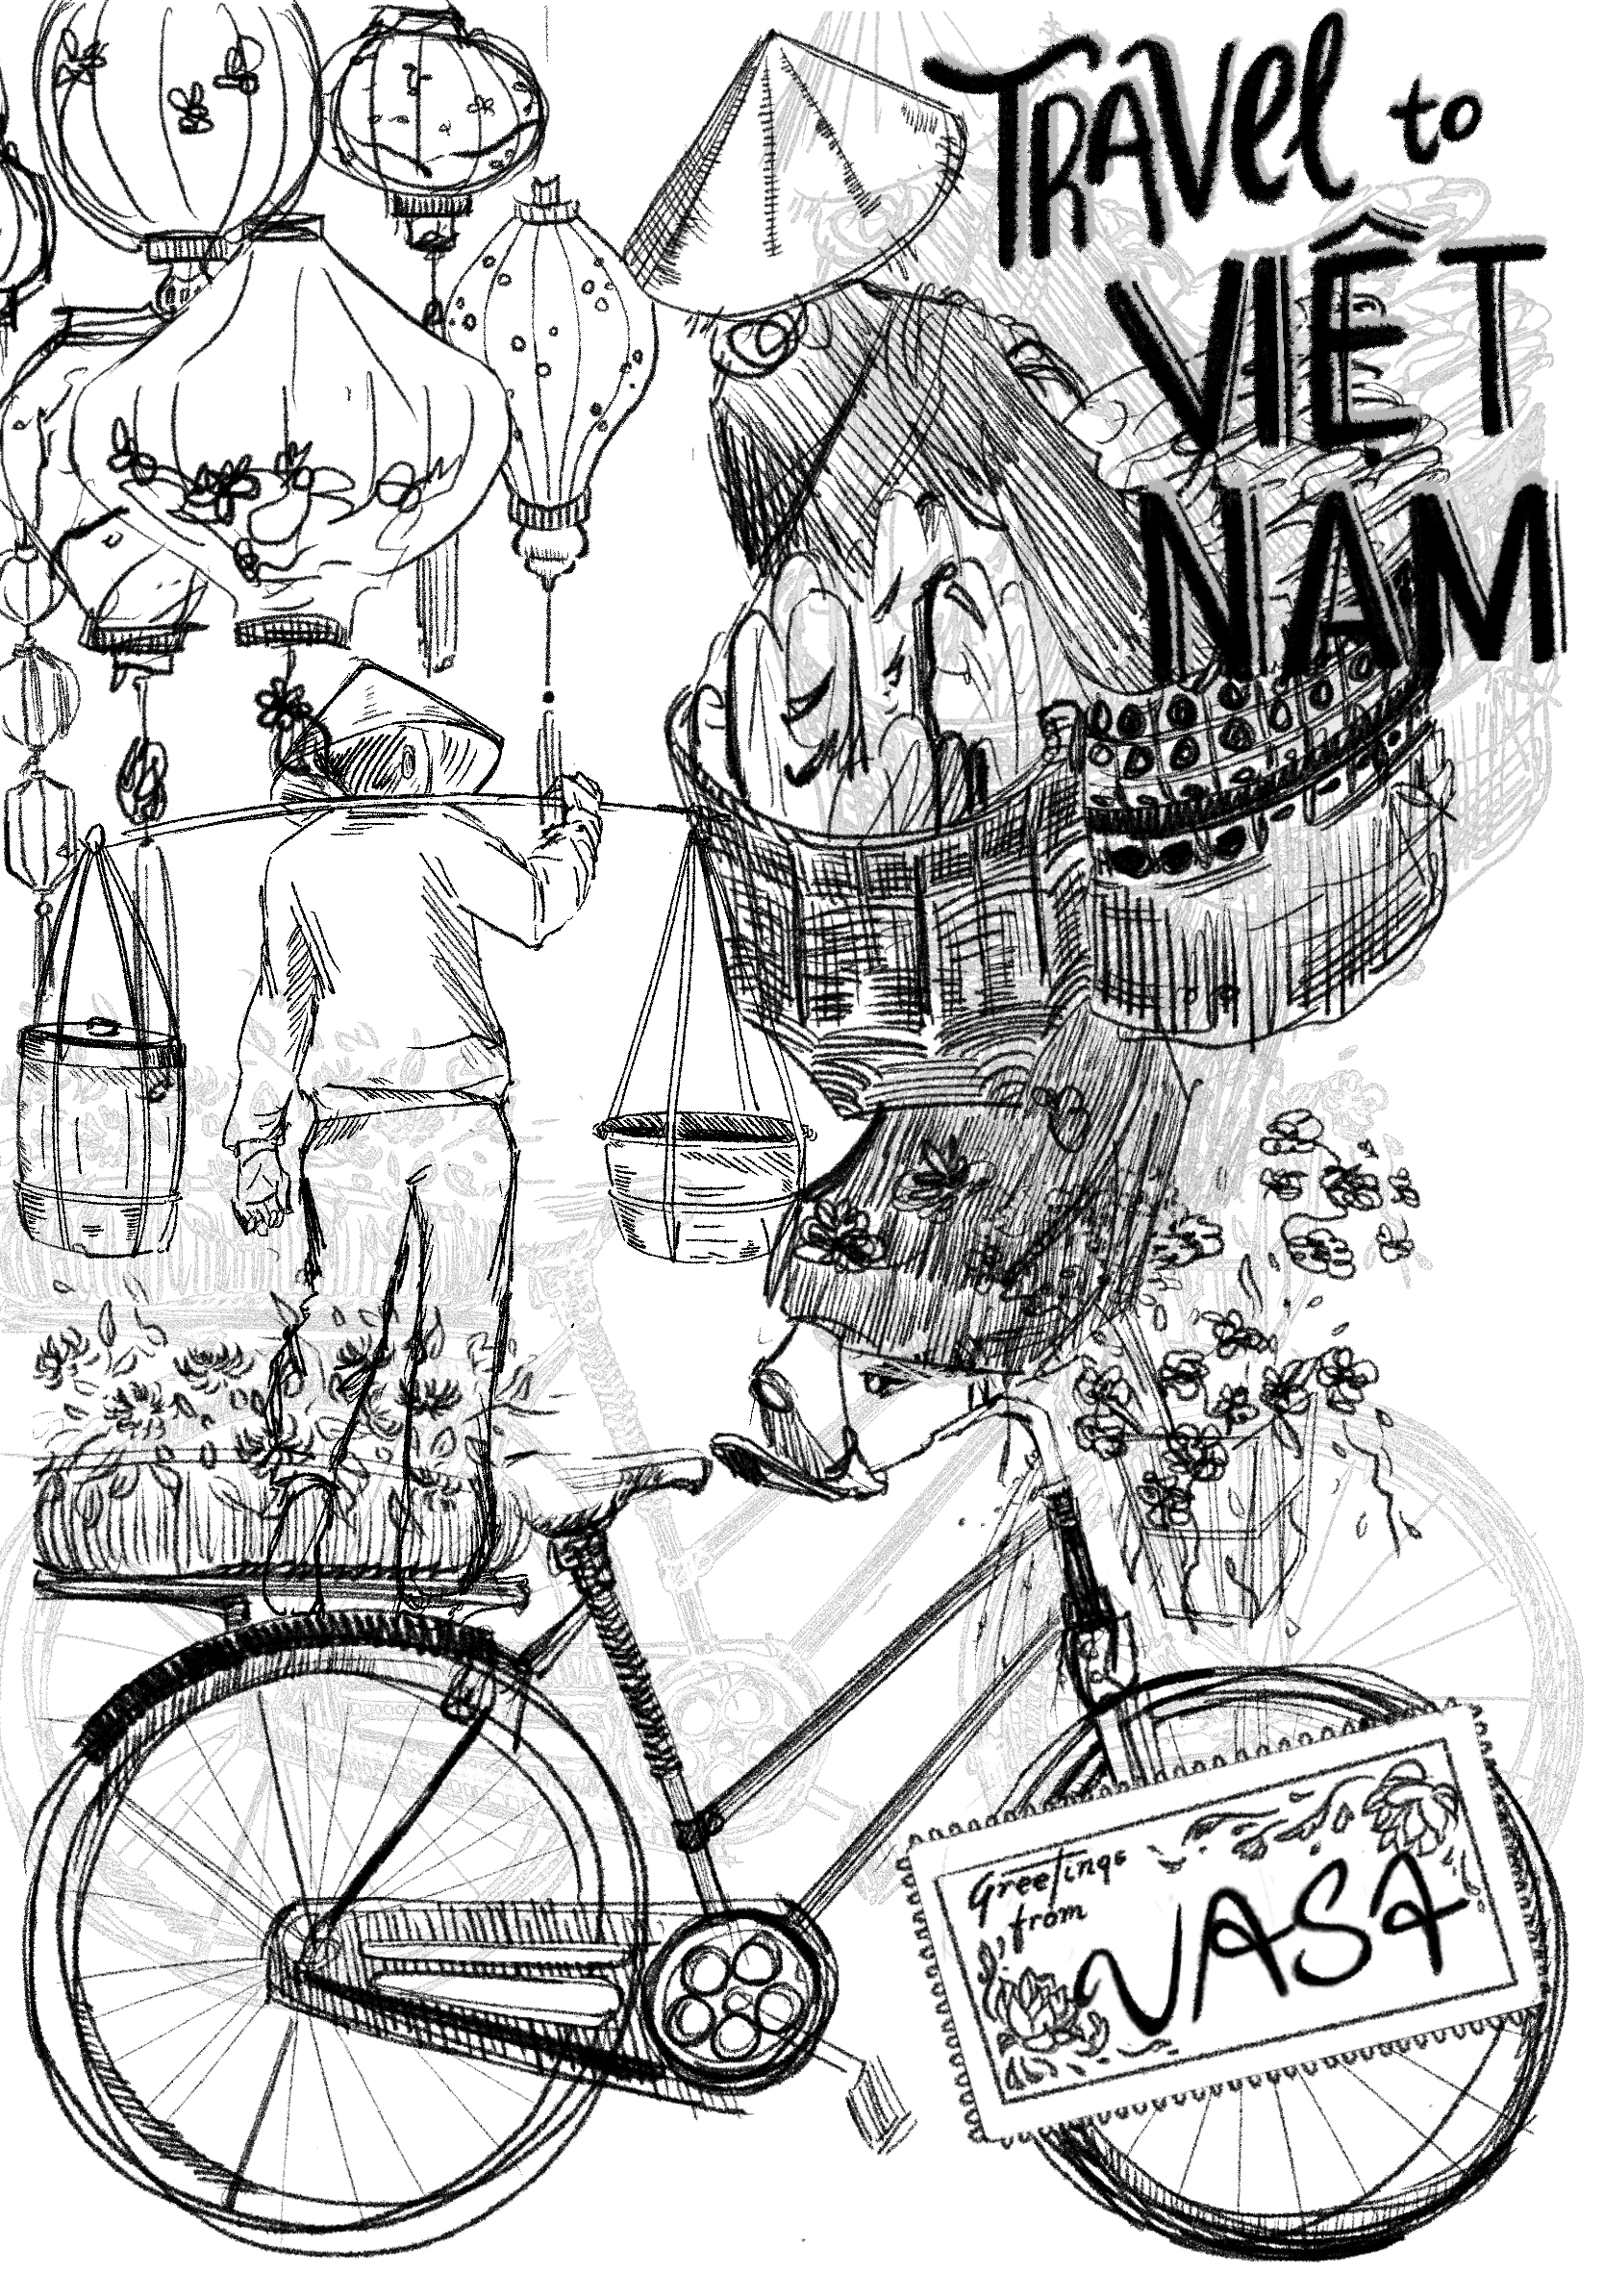 TRAVel to
VIỆT
NAM
Greetings
from
VASA